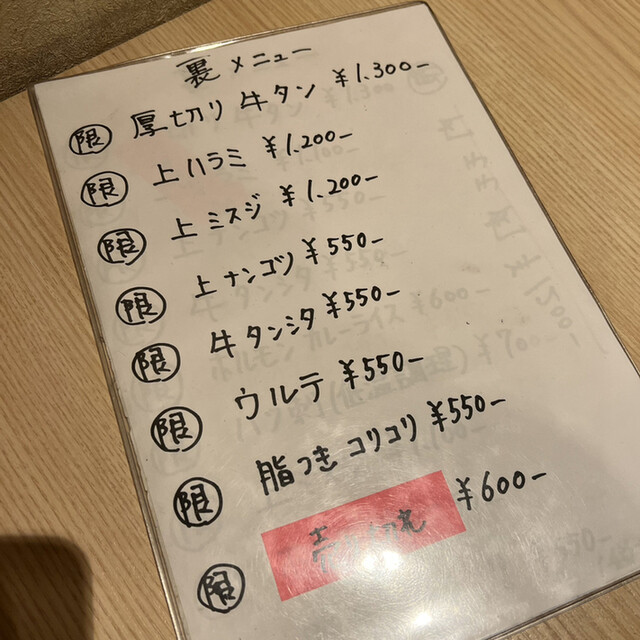 裏メニュー
限 厚切り牛タン ¥1.300-
限 上ハラミ ¥1.200-
限 上ミスジ ¥1.200-
限 上ナンゴツ ¥550-
限 牛タンシタ ¥550-
限 ウルテ ¥550-
限 脂つきコリコリ ¥550-
限 売り切れ ¥600-